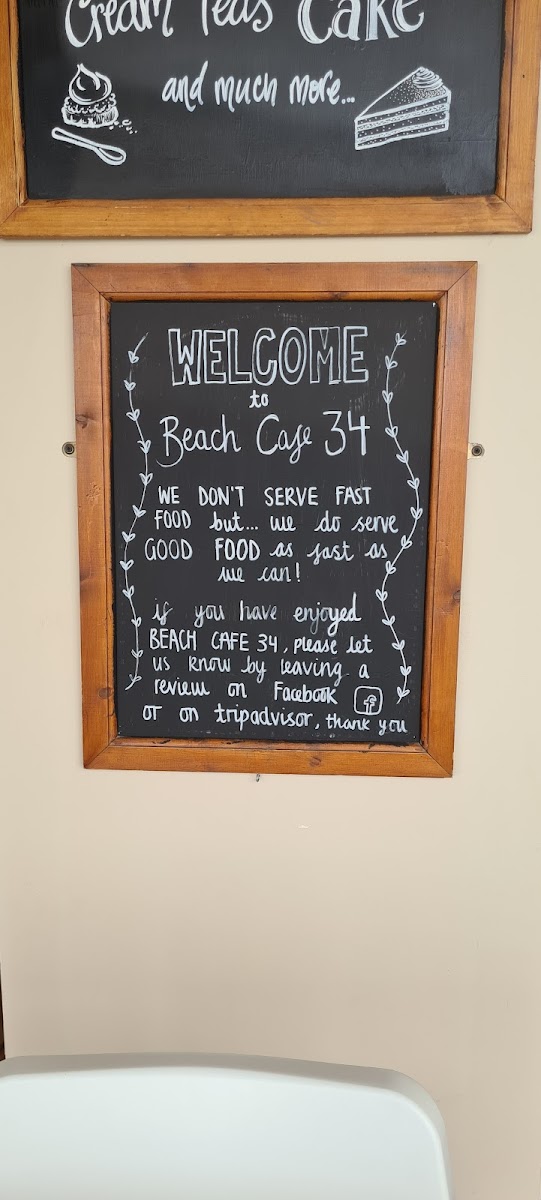 Cream Teas Cake
and much more...
WELCOME
to
Beach Cafe 34
WE DON'T SERVE FAST
FOOD but... we do serve
GOOD FOOD as fast as
we can!
if you have enjoyed
BEACH CAFE 34, please let
us know by leaving a
review on Facebook f
or on tripadvisor, thank you